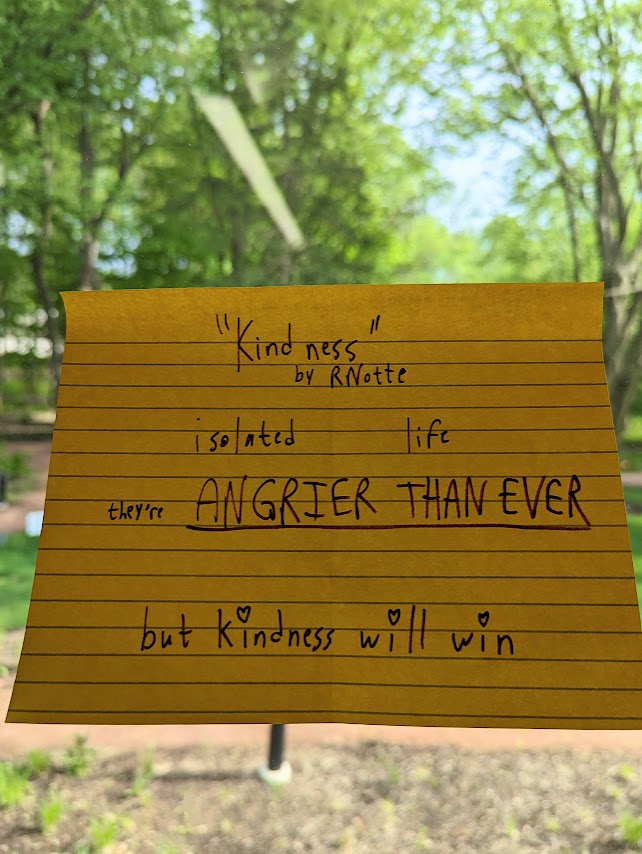 "Kindness"
by RNotte
isolated life
they're ANGRIER THAN EVER
but kindness will win